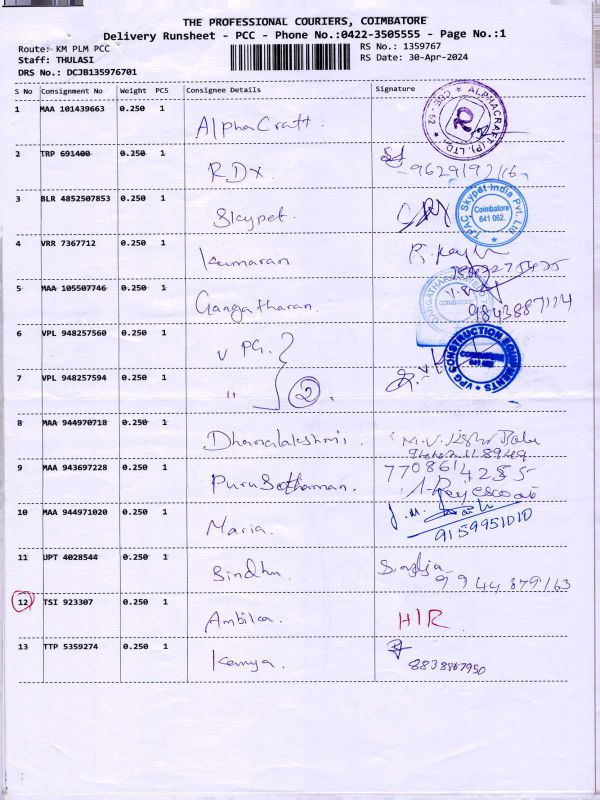 THE PROFESSIONAL COURIERS, COIMBATORE
Delivery Runsheet - PCC - Phone No.:0422-3505555 - Page No.:1
Route: KM PLM PCC
RS No.: 1359767
Staff: THULASI
RS Date: 30-Apr-2024
DRS No.: DCJB135976701
S No Consignment No Weight PCS Consignee Details Signature
1 MAA 101439663 0.250 1 AlphaCraft
ALPHACRAFT (P). LTD. CBE-62
2 TRP 691400 0.250 1 RDX.
3 BLR 4852507853 0.250 1 Skypet.
TPAC Skypet India Pvt. Ltd. Coimbatore 641 062.
4 VRR 7367712 0.250 1 Kumaran
5 MAA 105507746 0.250 1 Gangatharan.
COIMBATORE
9843887114
6 VPL 948257560 0.250 1 V PG.
VPG CONSTRUCTION EQUIPMENTS COIMBATORE 641 062
7 VPL 948257594 0.250 1 " 2
8 MAA 944970718 0.250 1 Dhanalakshmi.
9 MAA 943697228 0.250 1 Purusothaman.
7708614255
10 MAA 944971020 0.250 1 Maria.
9159951010
11 UPT 4028544 0.250 1 Sindhu.
9944879163
12 TSI 923307 0.250 1 Ambika. HIR
13 TTP 5359274 0.250 1 Kanya.
8838867950